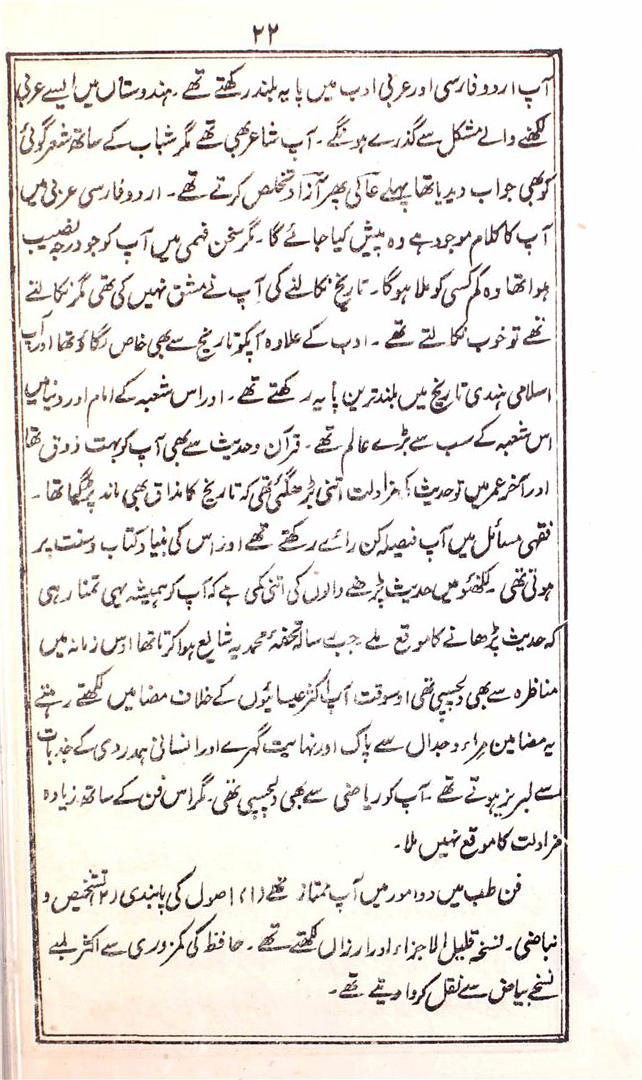 ۲۲
آپ اردو فارسی اور عربی ادب میں پایہ بلند رکھتے تھے۔ ہندوستان میں ایسے عربی
لکھنے والے مشکل سے گذرے ہونگے۔ آپ شاعر بھی تھے مگر شباب کے ساتھ شعر گوئی
کو بھی جواب دیدیا تھا پہلے عاکی پھر آزاد تخلص کرتے تھے۔ اردو فارسی عربی میں
آپ کا کلام موجود ہے وہ پیش کیا جائے گا۔ مگر سخن فہمی میں آپ کو جو درجہ نصیب
ہوا تھا وہ کم کسی کو ملا ہوگا۔ تاریخ نکالنے کی آپ نے مشق نہیں کی تھی مگر نکالتے
تھے تو خوب نکالتے تھے۔ ادب کے علاوہ آپکو تاریخ سے بھی خاص لگاؤ تھا اور آپ
اسلامی ہندی تاریخ میں بلند ترین پایہ رکھتے تھے۔ اور اس شعبہ کے امام اور دنیا میں
اس شعبہ کے سب سے بڑے عالم تھے۔ قرآن و حدیث سے بھی آپ کو بہت ذوق تھا
اور آخر عمر میں تو حدیث کی مزاولت اتنی بڑھ گئی تھی کہ تاریخ کا مذاق بھی ماند پڑ گیا تھا۔
فقہی مسائل میں آپ فیصلہ کن رائے رکھتے تھے اور اس کی بنیاد کتاب و سنت پر
ہوتی تھی۔ لکھنؤ میں حدیث پڑھنے والوں کی اتنی کمی ہے کہ آپ کو ہمیشہ یہی تمنا رہی
کہ حدیث پڑھانے کا موقع ملے جب رسالہ تحفۂ محمدیہ شایع ہوا کرتا تھا اوس زمانہ میں
مناظرہ سے بھی دلچسپی تھی اوسوقت آپ اکثر عیسائیوں کے خلاف مضامین لکھتے رہتے
یہ مضامین مراء و جدال سے پاک اور نہایت گہرے اور انسانی ہمدردی کے جذبات
سے لبریز ہوتے تھے۔ آپ کو ریاضی سے بھی دلچسپی تھی۔ مگر اس فن کے ساتھ زیادہ
مزاولت کا موقع نہیں ملا۔
فن طب میں دو امور میں آپ ممتاز تھے (۱) اصول کی پابندی (۲) تشخیص و
نباضی۔ نسخہ قلیل الاجزاء اور ارزاں لکھتے تھے۔ حافظ کی کمزوری سے اکثر لمبے
نسخے بیاض سے نقل کروا دیتے تھے۔